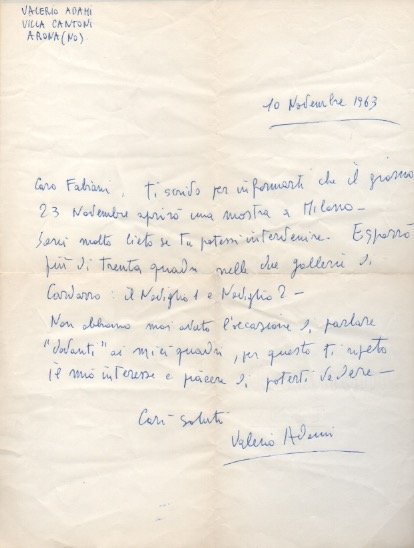 VALERIO ADAMI
VILLA CANTONI
ARONA (NO)
10 Novembre 1963
Caro Fabiani, ti scrivo per informarti che il giorno
23 Novembre aprirò una mostra a Milano -
Sarei molto lieto se tu potessi intervenire. Esporrò
più di trenta quadri nelle due gallerie di
Cardazzo: il Naviglio 1 e Naviglio 2 -
Non abbiamo mai avuto l'occasione di parlare
"davanti" ai miei quadri, per questo ti ripeto
il mio interesse e piacere di poterti vedere -
Cari saluti
Valerio Adami